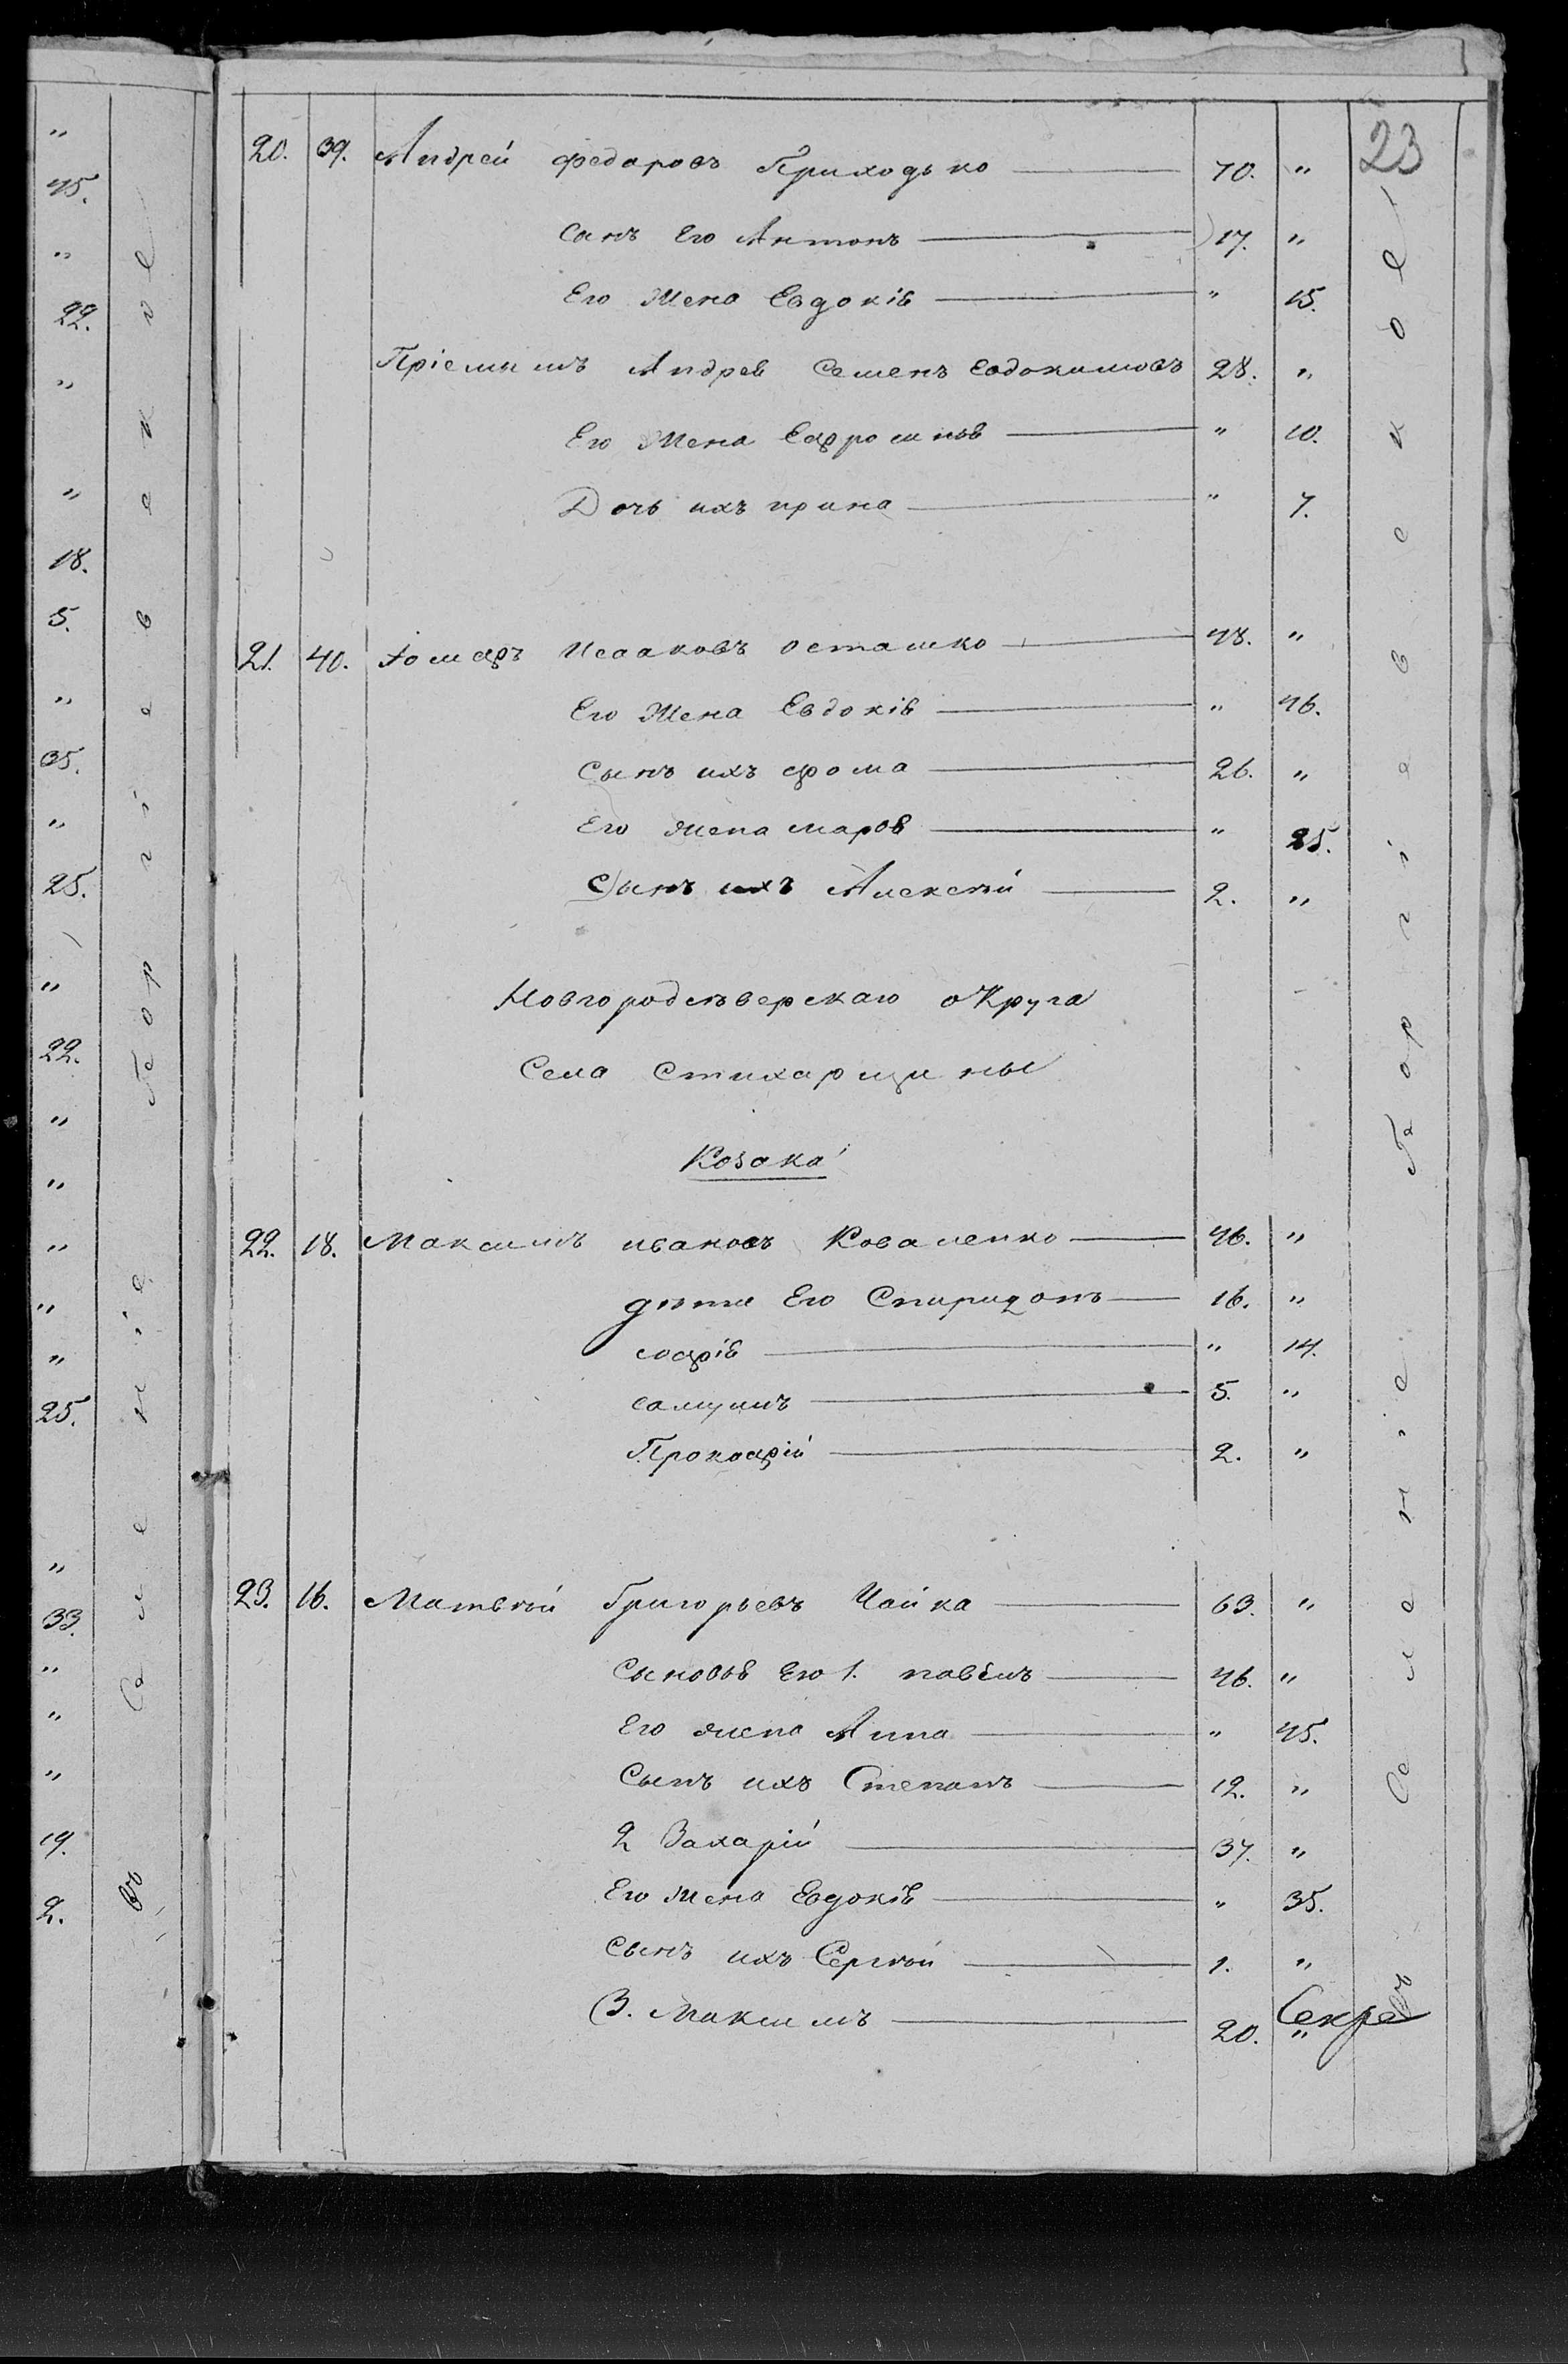 23
20. 39. Андрей Федоровъ Приходько 70. "
Сынъ Его Антонъ 17. "
Его Жена Евдокія " 15.
Пріемышъ Андрея Семенъ Евдокимовъ 28. "
Его Жена Ефросинья " 10.
Дочь ихъ ирина " 7.
21. 40. Іосифъ Исааковъ осташко 48. "
Его Жена Евдокія " 46.
Сынъ ихъ фома 26. "
Его жена марѳа " 25.
Сынъ ихъ Алексѣй 2. "
Новгородсѣверскаго округа
Села Стихарщины
Козака
22. 18. Максимъ ивановъ Коваленко 46. "
дѣти Его Спиридонъ 16. "
софія " 14.
самуилъ 5. "
Прокофій 2. "
23. 16. Матвѣй Григорьевъ Чайка 63. "
Сыновья Его 1. павелъ 46. "
Его жена Анна " 45.
Сынъ ихъ Степанъ 12. "
2 Захарій 37. "
Его Жена Евдокія " 35.
Сынъ ихъ Сергѣй 1. "
3. Максимъ 20. "
Секре
Въ Селеніе Георгіевское
"
45.
"
22.
"
"
18.
5.
"
35.
"
25.
"
22.
"
"
"
"
"
25.
"
33.
"
"
"
19.
2.
Въ Селеніе Георгіевское